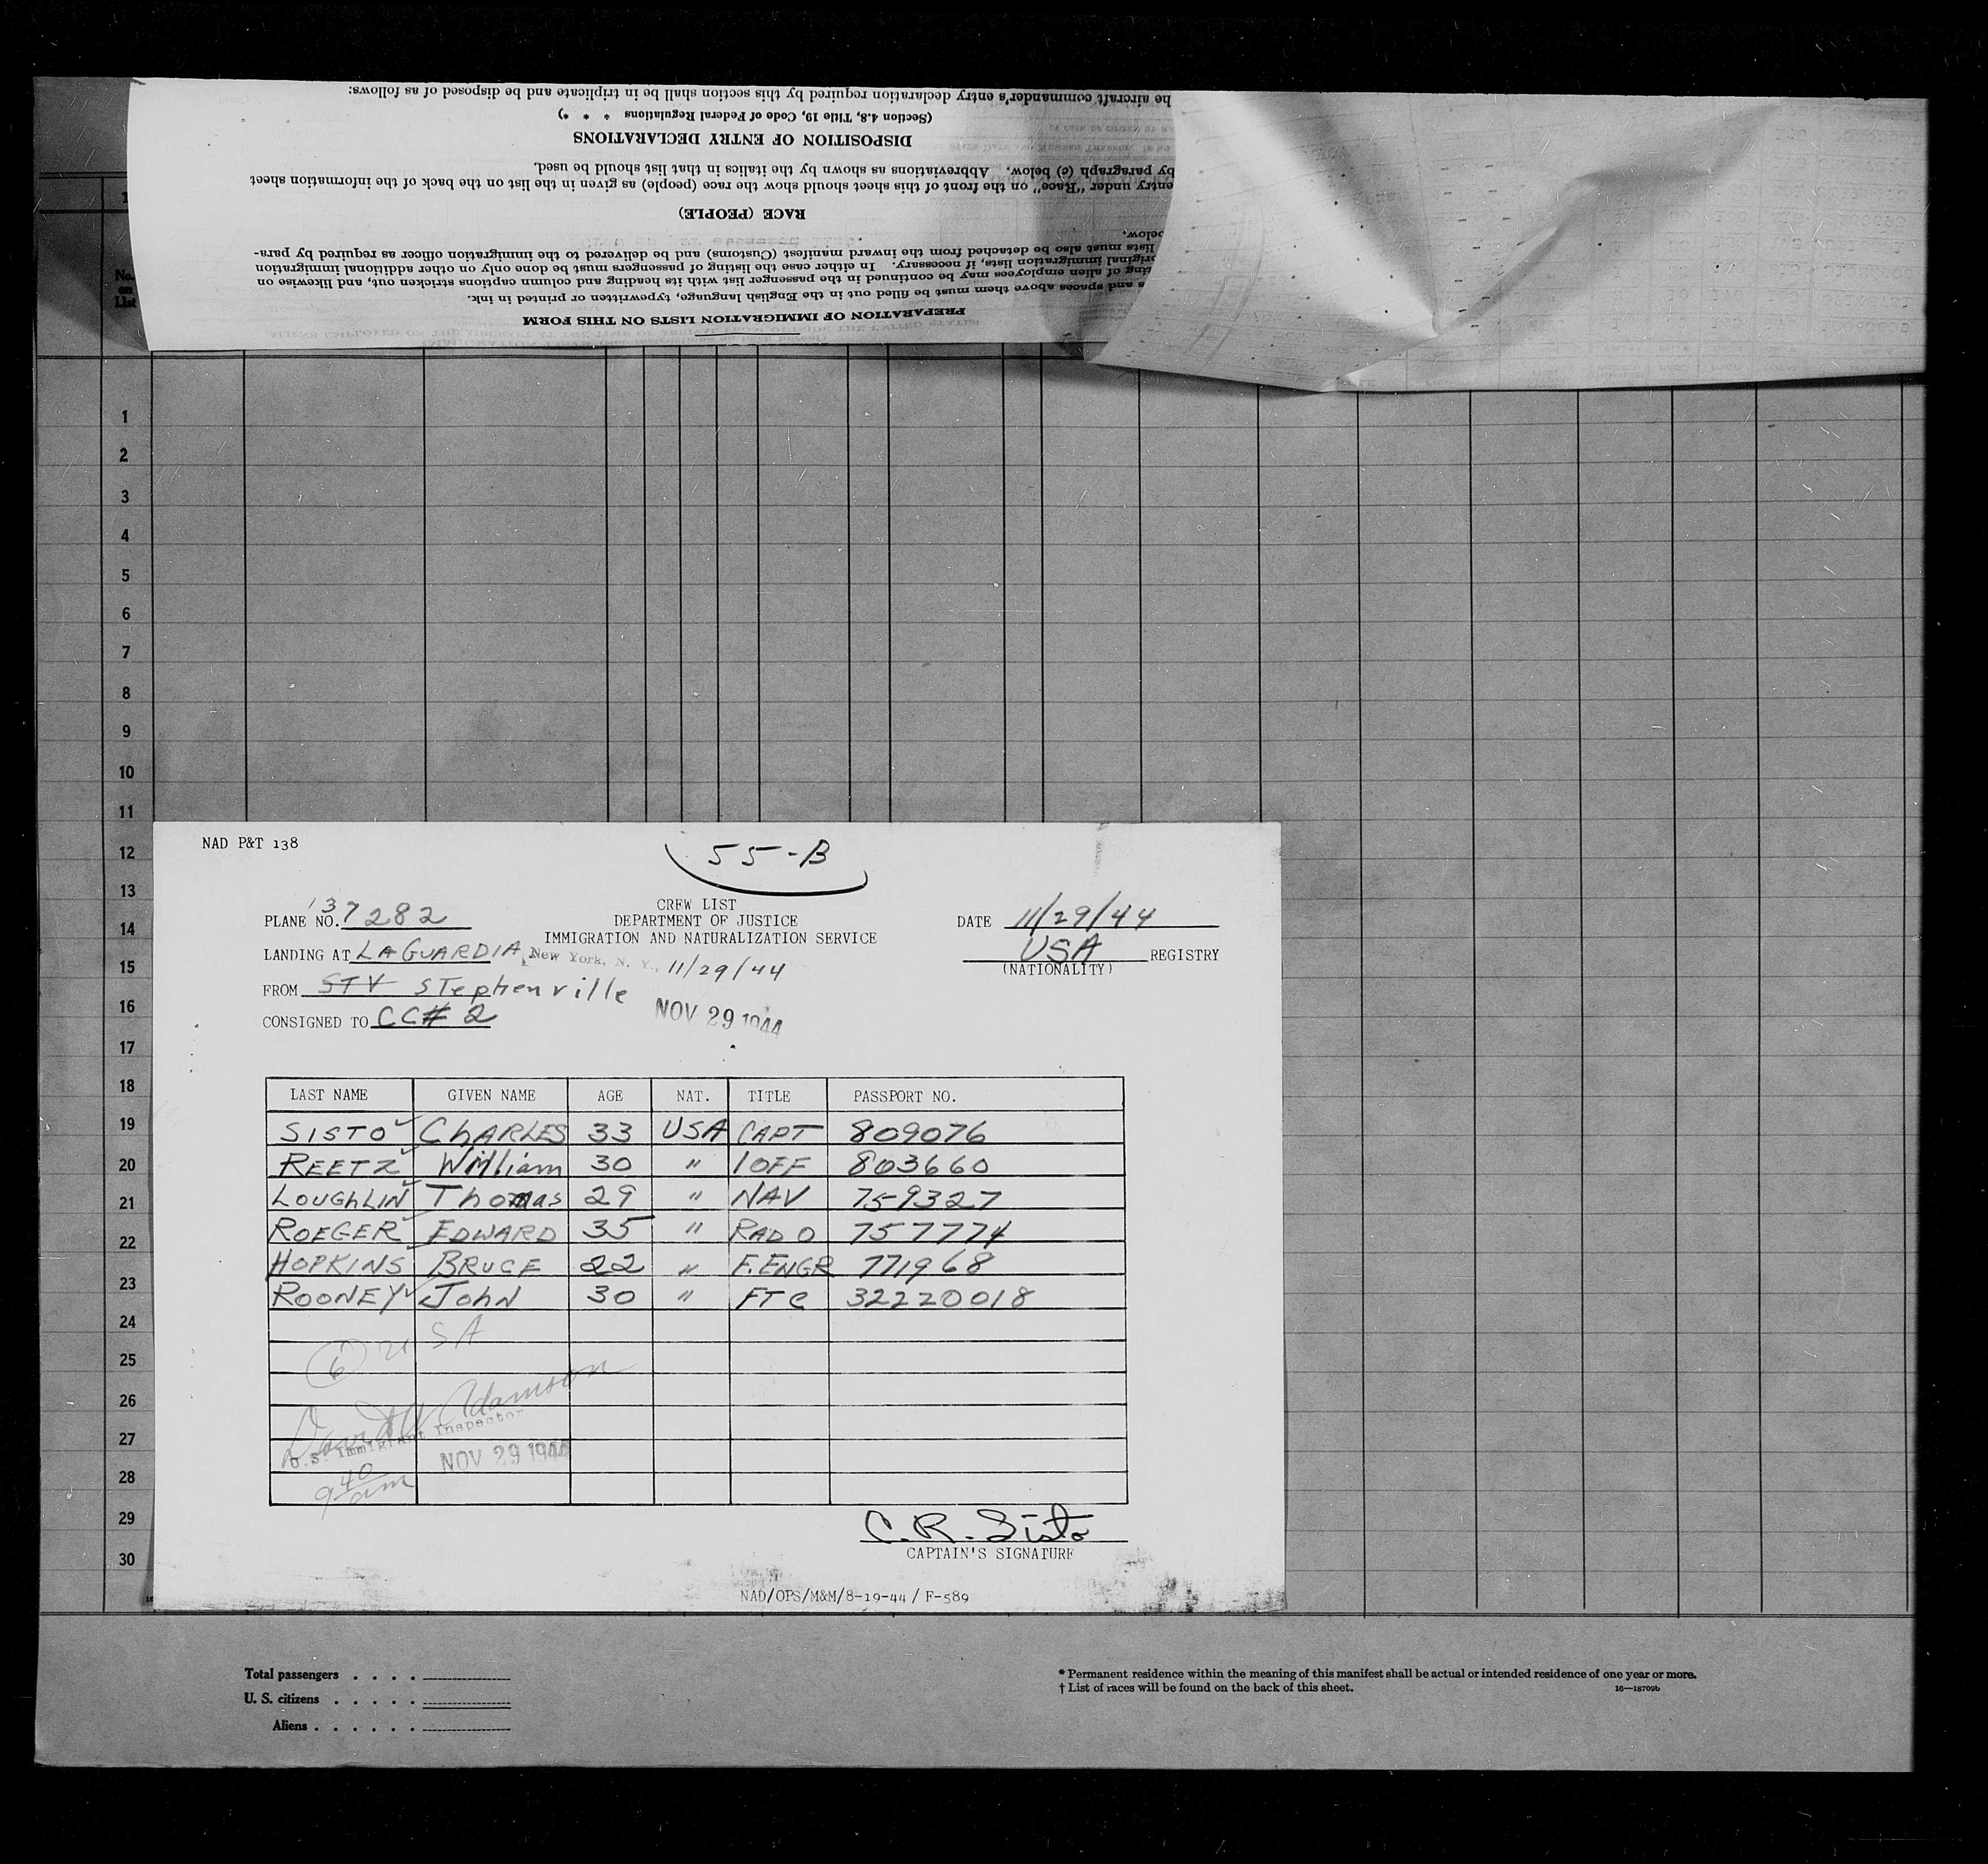 he aircraft commander's entry declaration required by this section shall be in triplicate and be disposed of as follows:
(Section 4.8, Title 19, Code of Federal Regulations * * *)
DISPOSITION OF ENTRY DECLARATIONS
by paragraph (c) below. Abbreviations as shown by the italics in that list should be used.
entry under "Race" on the front of this sheet should show the race (people) as given in the list on the back of the information sheet
RACE (PEOPLE)
below.
lists must also be detached from the inward manifest (Customs) and be delivered to the immigration officer as required by para-
original immigration lists, if necessary. In either case the listing of passengers must be done only on other additional immigration
ting of alien employees may be continued in the passenger list with its heading and column captions stricken out, and likewise on
s and spaces above them must be filled out in the English language, typewritten or printed in ink.
PREPARATION OF IMMIGRATION LISTS ON THIS FORM
No. on List
1
2
3
4
5
6
7
8
9
10
11
12
13
14
15
16
17
18
19
20
21
22
23
24
25
26
27
28
29
30
NAD P&T 138
55-B
CREW LIST
DEPARTMENT OF JUSTICE
IMMIGRATION AND NATURALIZATION SERVICE
PLANE NO. 137282
DATE 11/29/44
LANDING AT LAGUARDIA, New York, N. Y., 11/29/44
USA REGISTRY
(NATIONALITY)
FROM STV Stephenville
CONSIGNED TO CC# 2
NOV 29 1944
LAST NAME GIVEN NAME AGE NAT. TITLE PASSPORT NO.
SISTO CHARLES 33 USA CAPT 809076
REETZ William 30 " 1OFF 803660
LOUGHLIN Thomas 29 " NAV 759327
ROEGER EDWARD 35 " RAD O 757774
HOPKINS BRUCE 22 " F.ENGR 771968
ROONEY JOHN 30 " FTC 32220018
6 USA
David W Adamson
U.S. Immigrant Inspector
NOV 29 1944
9 40 am
C. R. Sisto
CAPTAIN'S SIGNATURE
NAD/OPS/M&M/8-19-44 / F-589
Total passengers . . . .
U. S. citizens . . . . .
Aliens . . . . . .
* Permanent residence within the meaning of this manifest shall be actual or intended residence of one year or more.
† List of races will be found on the back of this sheet.
16—18709b